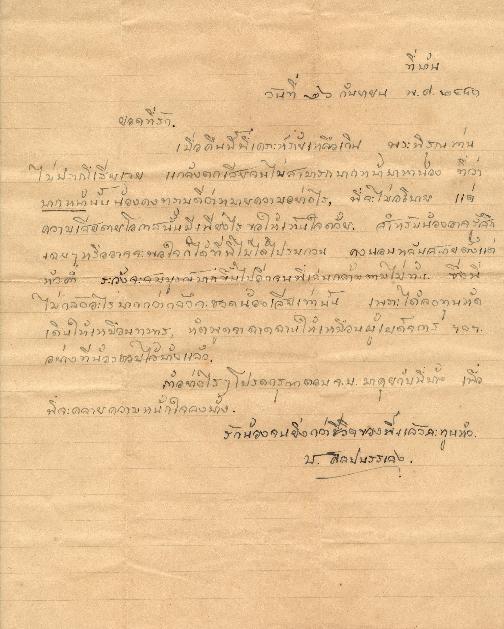 ที่บ้าน
วันที่ ๒๖ กันยายน พ.ศ. ๒๔๘๖
ยอดที่รัก.
เมื่อคืนนี้พี่เคราะห์ร้ายเหลือเกิน พระพิรุณท่าน
ไม่ปรานีเสียเลย แกล้งตกเสียจนไม่สามารถมาหาน้อง ที่ว่า
น้องคงทราบดีว่าหมายความอย่างไร, พี่จะไม่อธิบาย แต่
ความเสียดายโอกาสนั้นมีเพียงไร ขอให้เห็นใจด้วย. สำหรับน้องอาจรู้สึก
เฉยๆ หรืออาจจะพอใจก็ได้ที่พี่ไม่ได้ไปรบกวน คงนอนหลับสบาย
ไม่กลัวอะไรมากกว่ากลัวจะ น้องเสียเท่านั้น เพราะได้ลงทุนหัด
เดินให้เหมือนทหาร, หัดพูด ให้เหมือนผู้ ฯลฯ.
อย่างที่น้อง ไว้บ้างแล้ว.
ถ้าอย่างไรๆ โปรดกรุณาตอบ จ.ม. มาคุยกับพี่บ้าง เพื่อ
พี่จะคลายความหนักใจลงบ้าง.
รักน้องจนยิ่งกว่าชีวิตของพี่แล้วละทูนหัว.